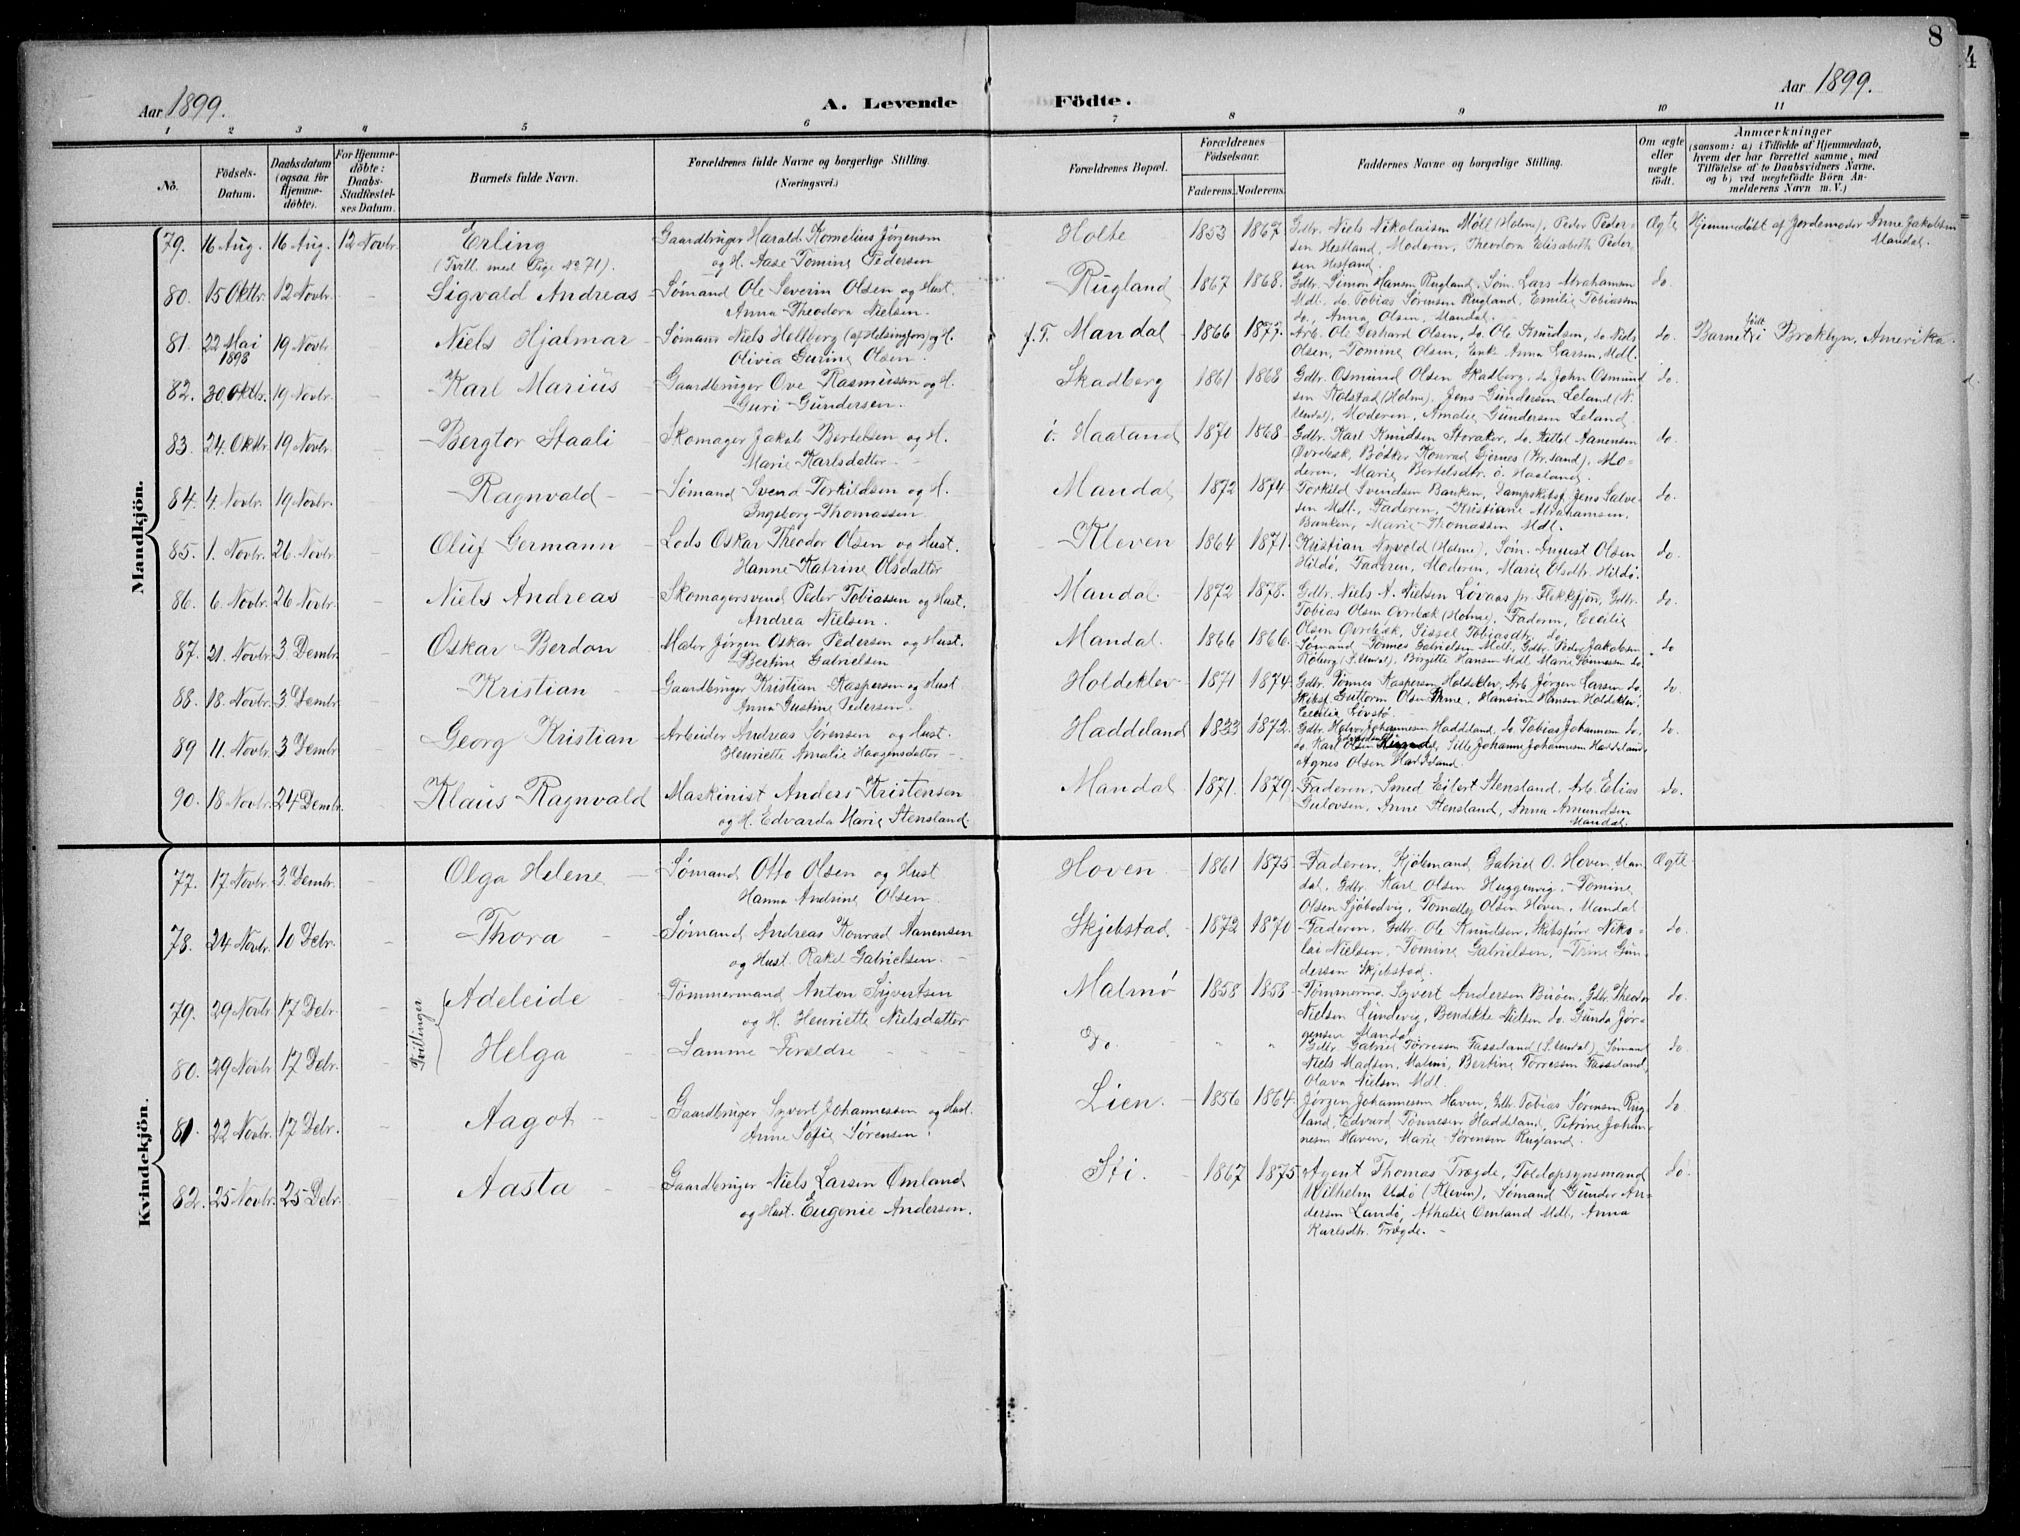 8
4
Aar 1899.
A. Levende Födte.
Aar 1899.
1 2 3 4 5 6 7 8 9 10 11
No.
Födsels-Datum.
Daabsdatum (ogsaa for Hjemmedöbte).
For Hjemmedöbte: Daabs-Stadfæstelses Datum.
Barnets fulde Navn.
Forældrenes fulde Navne og borgerlige Stilling.
(Næringsvei.)
Forældrenes Bopæl.
Forældrenes Födselsaar.
Faderens. Moderens.
Faddernes Navne og borgerlige Stilling.
Om ægte eller uægte födt.
Anmærkninger
(saasom: a) i Tilfælde af Hjemmedaab, hvem der har forrettet samme, med Tilföielse af to Daabsvidners Navne. og b) ved uægtefödte Börn Anmelderens Navn m. V.)
Mandkjön.
79. 16 Aug. 16 Aug. 12 Novbr. Erling (Tvill. med Pige No 71). Gaardbruger Harald Kornelius Jørgensen og H. Aase Tomine Pedersen Holte 1853 1867 Gdbr. Niels Nikolaisen Möll (Holm), Peder Pedersen Hestland, Moderen, Theodora Elisabeth Pedersen Hestland. Ægte Hjemmedöbt af Jordemoder Anne Jakobsen Mandal.
80. 15 Oktbr. 12 Novbr. - Sigvald Andreas Sömand Ole Severin Olsen og Hust. Anna Theodora Nielsen. Rugland 1867 1868. Gdbr. Simon Hansen Rugland, Söm. Lars Abrahamsen Mdl. do. Tobias Sörensen Rugland, Emilie Tobiassen do., Anna Olsen, Mandal. do.
81. 22 Mai 1898 19 Novbr - Niels Hjalmar Sömand Niels Hollberg (af Helsingfors) og H. Olivia Gurine Olsen. f. T. Mandal 1866 1877. Arb. Ole Gerhard Olsen, do. Ole Amundsen, do Niels Olsen, Tomine Olsen, Enke Anna Larsen, Mdl. do. Barnet födt i Broklyn, Amerika.
82. 30 Oktbr. 19 Novbr. - Karl Marius Gaardbruger Ove Rasmussen og H. Guri Gundersen. Skadberg 1861 1868 Gdbr. Osmund Olsen Skadberg, do John Osmundsen Kolstad (Holm), Jens Gundersen Leland (N. Undal), Moderen, Amalie Gundersen Leland. do.
83. 24. Oktbr. 19 Novbr. - Bergtor Staali Skomager Jakob Bertelsen og H. Marie Karlsdatter. ö. Haaland 1870 1868. Gdbr. Karl Knudsen Storaker, do. Kittel Aanensen Övrebæk, Bödker Konrad Gjernes (Kr.sand), Moderen, Marie Bertelsdtr. ö. Haaland. do.
84. 4. Novbr. 19 Novbr. - Ragnvald Sömand Svend Torkildsen og H. Ingeborg Thomassen. Mandal 1872 1874. Torkild Svendsen Banken, Dampskibsf. Jens Salvesen Mdl., Faderen, Kristiane Abrahamsen, Banken, Marie Thomassen Mdl. do.
85. 1. Novbr. 26 Novbr. - Oluf Germann Lods Oskar Theodor Olsen og Hust. Hanne Katrine Olsdatter Kleven 1864 1871. Kristian Nyvold (Holme), Söm. August Olsen Hildö, Faderen, Moderen, Marie Olsdtr. Hildö. do.
86. 6. Novbr. 26 Novbr. - Niels Andreas Skomagersvend Peder Tobiassen og Hust. Andrea Nielsen. Mandal. 1872 1878. Gdbr. Niels A. Nielsen Lövaas pr. Flekkefjord, Gdbr. Tobias Olsen Övrebæk (Holme), Faderen, Cecilie Olsen Övrebæk, Sissel Tobiasdtr. do. do.
87. 21. Novbr. 3 Dembr. Oskar Berdon Maler Jørgen Oskar Pedersen og Hust. Bertine Gabrielsen Mandal. 1866 1866. Sömand Tönnes Gabrielsen Mdl., Gdbr. Peder Jakobsen Röberg (S. Undal), Birgitte Hansen Mdl. Marie Tönnessen do. do
88. 18. Novbr. 3 Dembr. Kristian Gaardbruger Kristian Kaspersen og Hust Anna Gustine Pedersen. Holdeklev 1871 1874. Gdbr. Tönnes Kaspersen Holdeklev, Arb. Jörgen Larsen do, Skibsf. Guttorm Olsen, Hansine Hansen Holdeklev, Cecilie do.
89 11. Novbr. 3 Dembr. Georg Kristian Arbeider Andreas Sörensen og Hust. Henriette Amalie Haagensdatter. Haddeland 1833 1872. Gdbr. Halvor Johannessen Haddeland, do. Tobias Johannessen do, do. Karl Olsen, Sille Johanne Johannessen Haddeland, Agnes Olsen Haddeland. do.
90. 18 Novbr. 24 Dembr. Klaus Ragnvald Maskinist Anders Kristensen og H. Edvarda Marie Stensland. Mandal 1871. 1879. Faderen, Smed Eilert Stensland, Arb. Elias Gulovsen, Anne Stensland, Anna Amundsen Mandal. do.
Kvindekjön.
77. 17. Novbr. 3. Dembr. - Olga Helene Sömand Otto Olsen og Hust Hanna Andrine Olsen. Hoven. 1861 1875 Faderen, Kjöbmand Gabriel O. Hoven, Mandal, Gdbr. Karl Olsen Huggenvig, Tomine Olsen Sjöbodvig, Tomalie Olsen Hoven, Mandal Ægte
78. 24 Novbr. 10 Debr. - Thora Sömand Andreas Konrad Aanensen og Hust. Rakel Gabrielsen. Skjebstad. 1872 1870 Faderen, Gdbr. Ole Knudsen, Skibsförer Nikolai Nielsen, Tomine Gabrielsen, Trine Gundersen Skjebstad. do.
Tvillinger
79. 29 Novbr. 17 Debr. - Adeleide Tömmermand Anton Syvertsen og H. Henriette Nielsdatter Malmö 1858 1858. Tömmermd. Syvert Andersen Buöen, Gdbr. Theodor Nielsen Lundevig, Bendikte Nielsen do. Gunda Jörgensen Mandal do.
80. 29 Novbr 17 Debr. - Helga Samme Foreldre Do. " " Gdbr. Gabriel Törressen Fasseland (S. Undal), Sömand Niels Madsen, Malmö, Bertine Törressen Fasseland, Olava Nielsen Mdl. do
81 22 Novbr. 17 Debr. - Aagot Gaardbruger Syvert Johannessen og Hust. Anne Sofie Sörensen. Lien. 1856 1864. Jörgen Johannessen Haven, Gdbr. Tobias Sörensen Rugland, Edvard Tönnesen Haddeland, Petrine Johannessen Haven, Marie Sörensen Rugland. do.
82. 25 Novbr. 25 Debr. - Aasta Gaardbruger Niels Larsen Omland og Hust. Eugenie Andersen. Sti. 1867 1875 Agent Thomas Trægde, Toldopsynsmand Wilhelm Udö (Kleven), Sömand Gunder Andersen Landö, Athalie Omland Mdl, Anna Karlsdtr. Trægde. do.